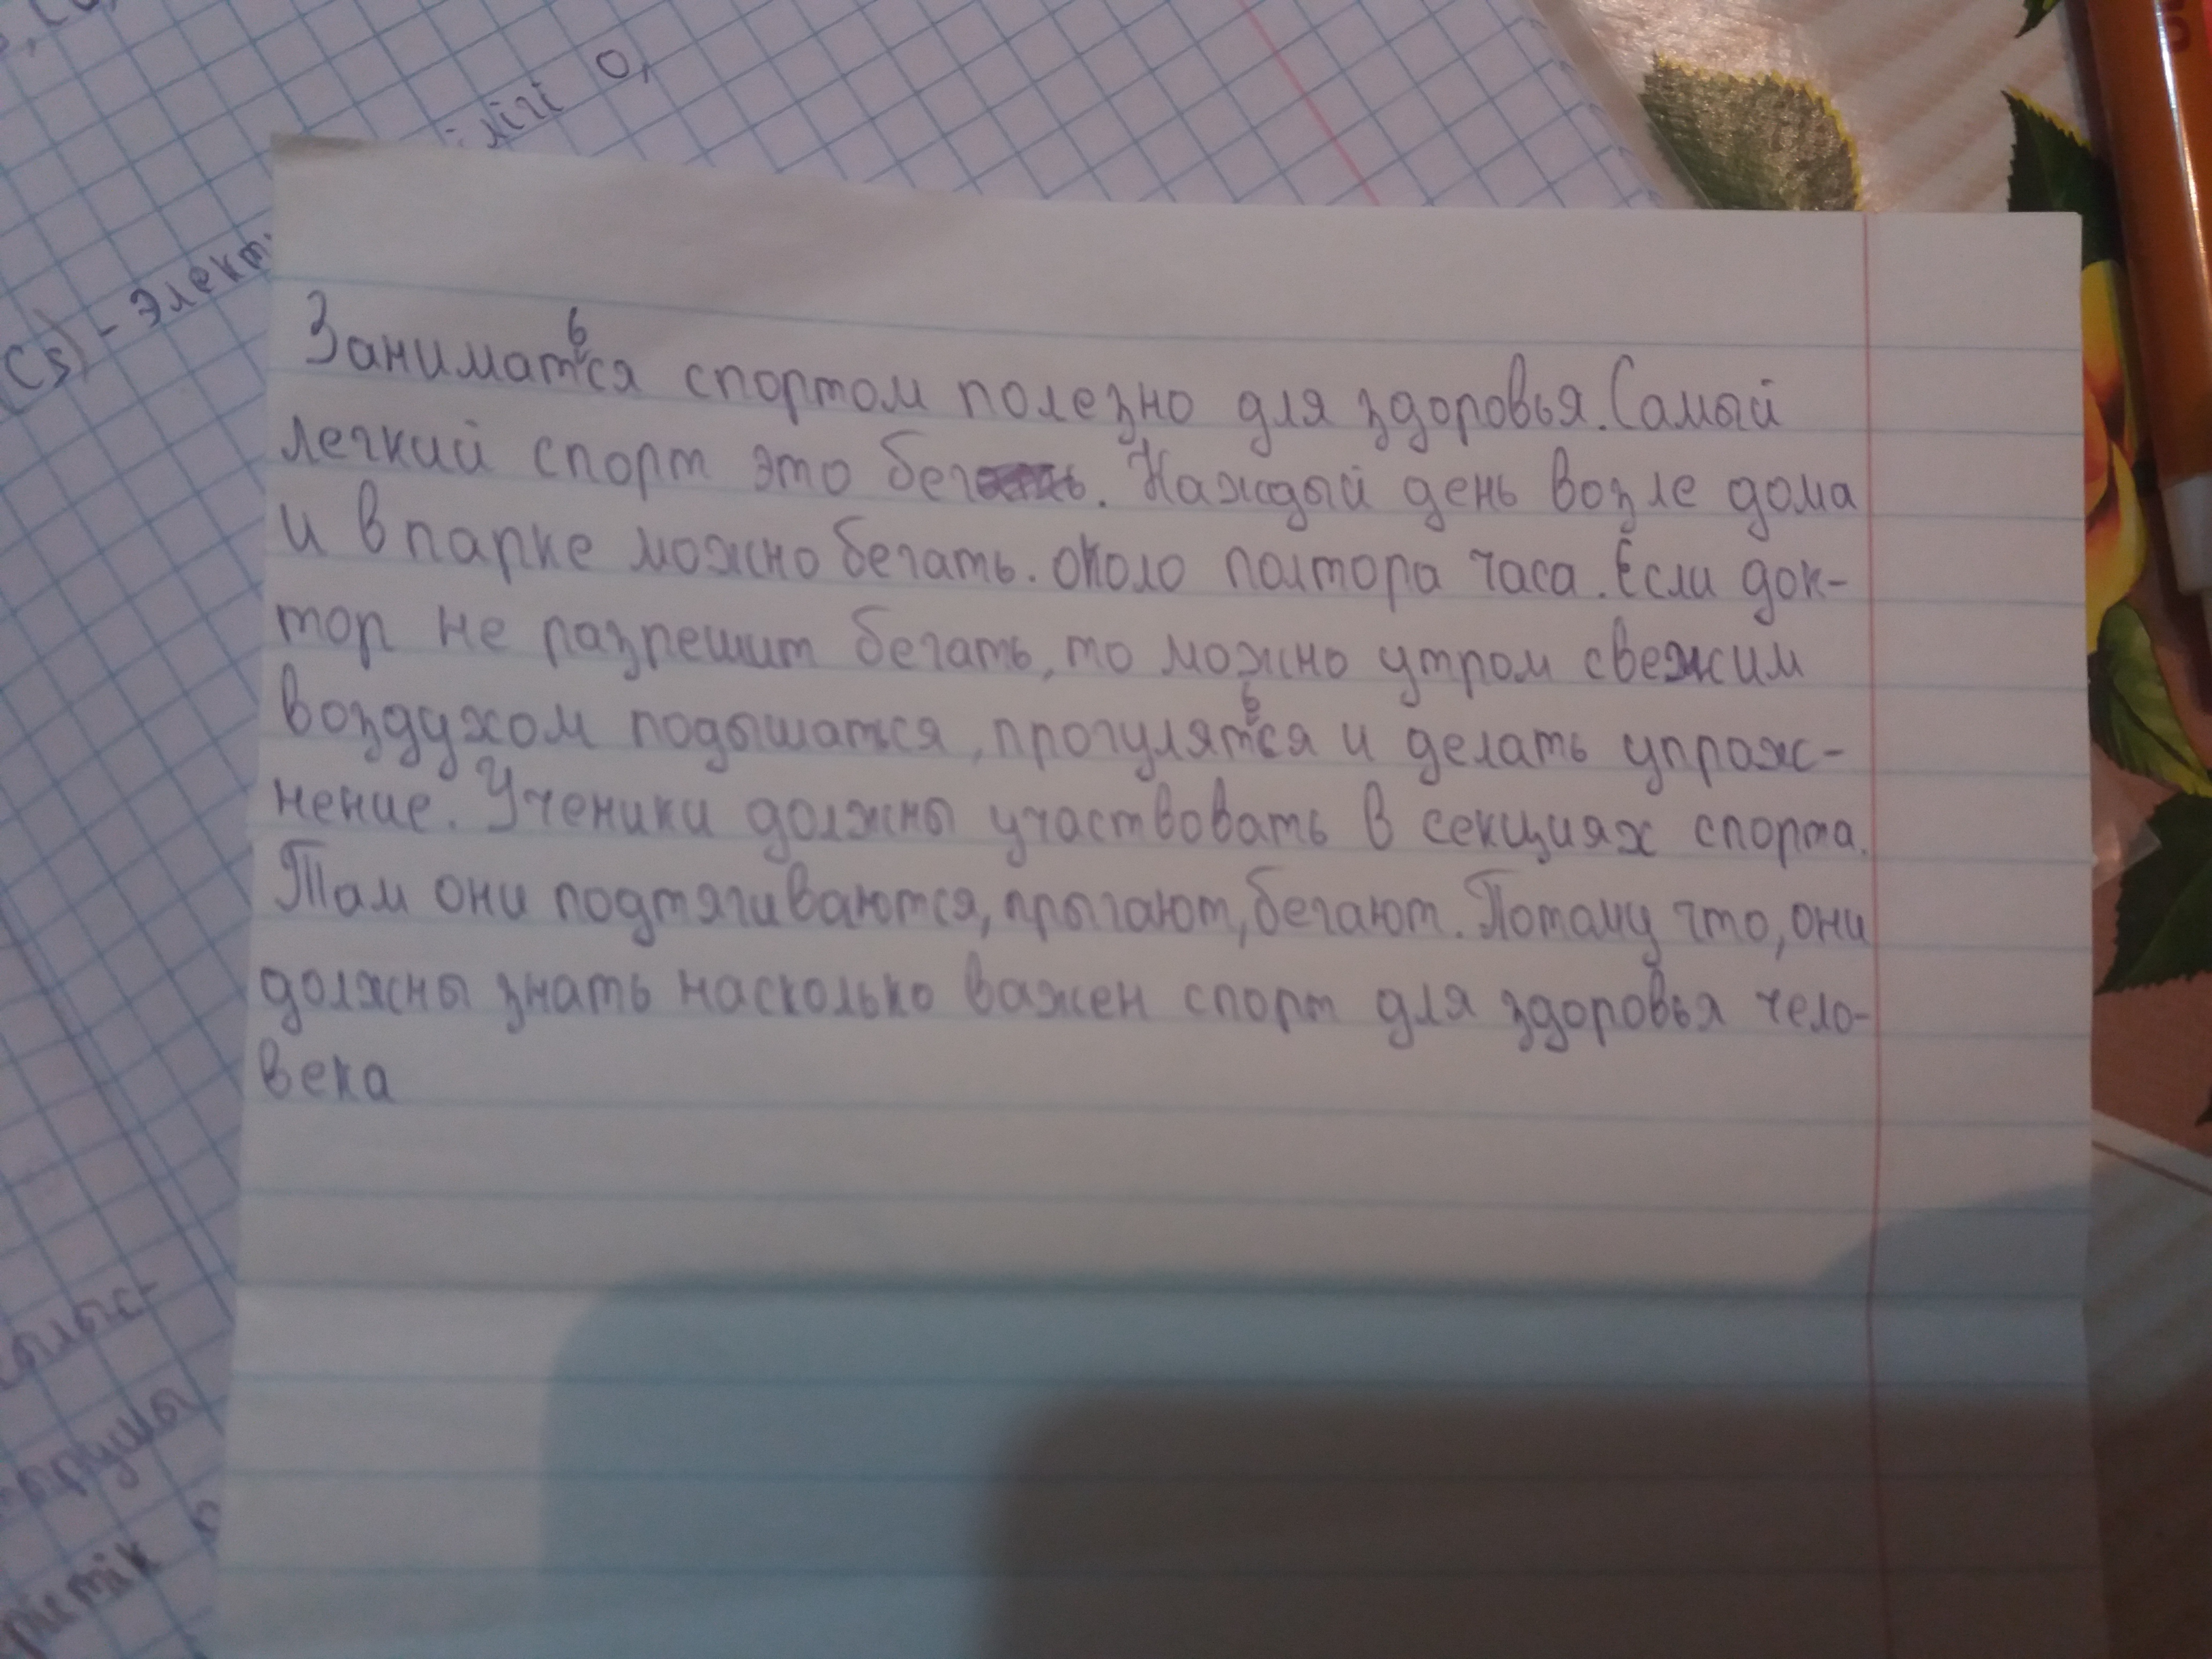 ілігі 0,
Cs) - элект
Заниматься спортом полезно для здоровья. Самый
легкий спорт это бег. Каждый день возле дома
и в парке можно бегать. около полтора часа. Если док-
тор не разрешит бегать, то можно утром свежим
воздухом подышатся, прогуляться и делать упраж-
нение. Ученики должны участвовать в секциях спорта.
Там они подтягиваются, прыгают, бегают. Потому что, они
должны знать насколько важен спорт для здоровья чело-
века